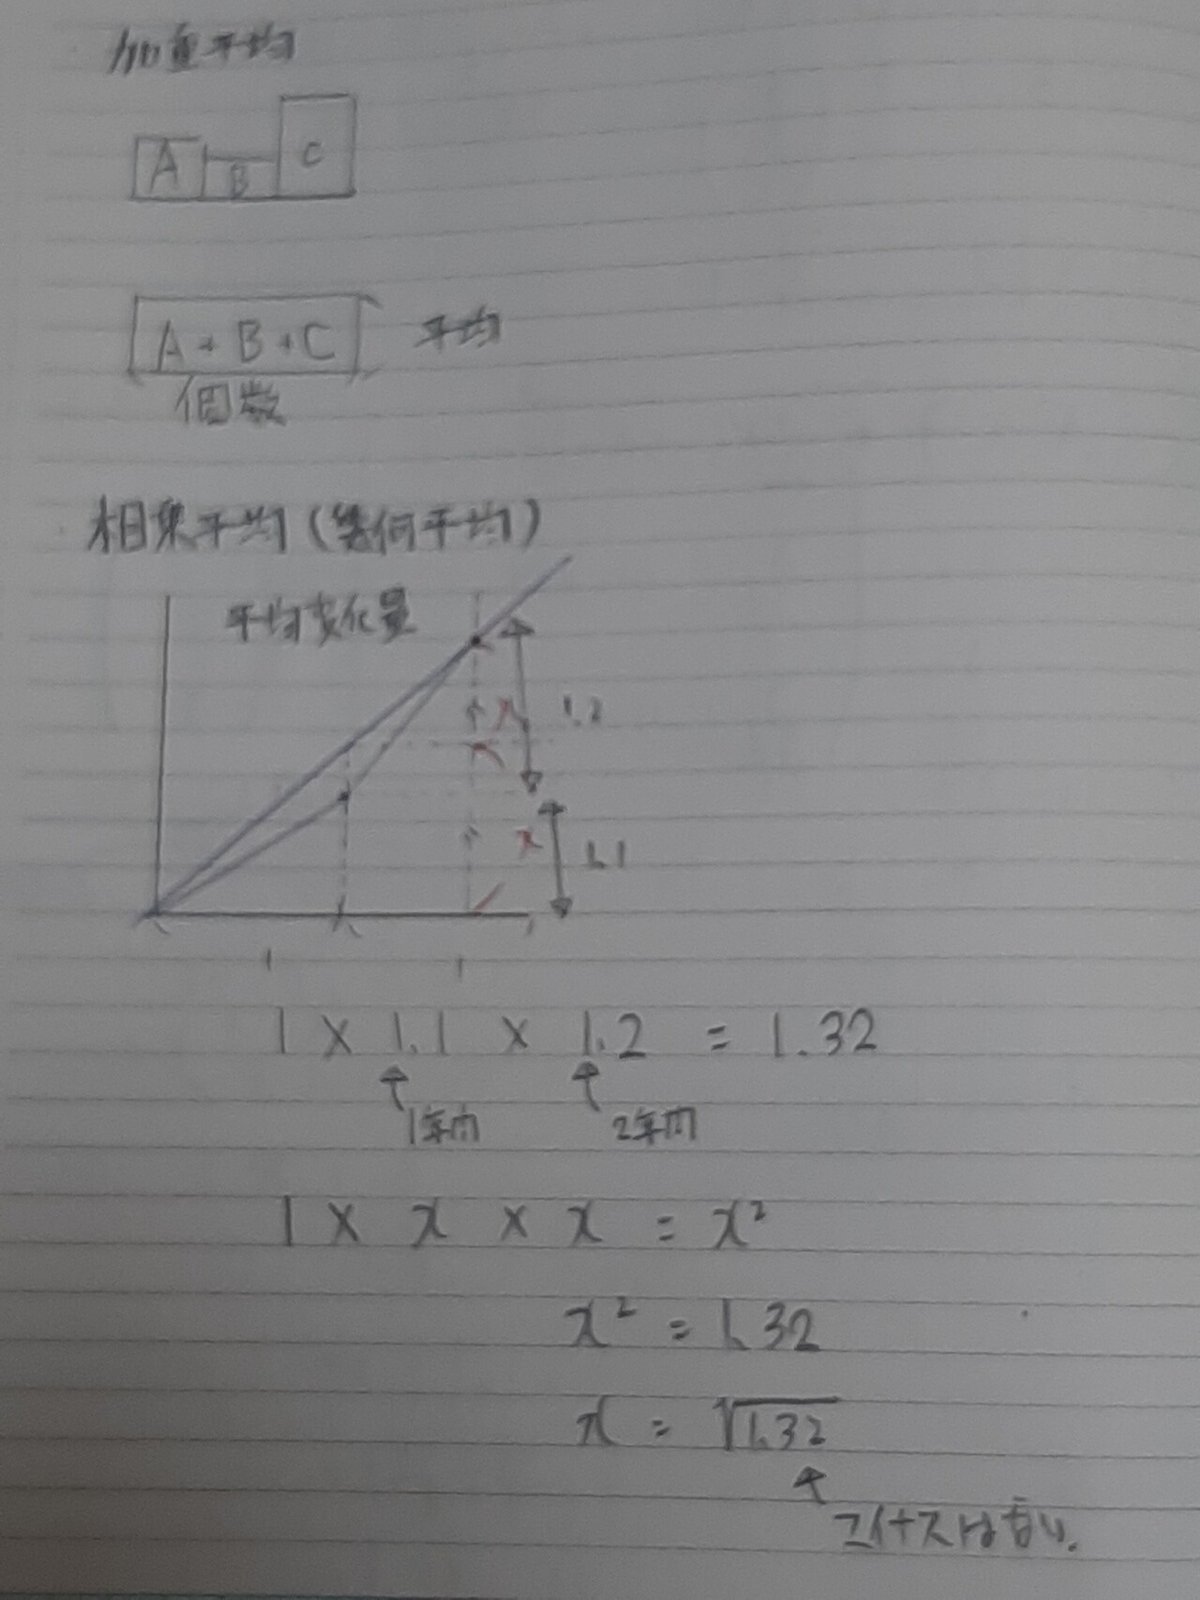 加重平均
A B C
A + B + C 平均
個数
相乗平均(幾何平均)
平均変化量
x 1.2
x 1.1
1 1
1 × 1.1 × 1.2 = 1.32
1年間 2年間
1 × x × x = x²
x² = 1.32
x = √1.32
マイナスは無い.